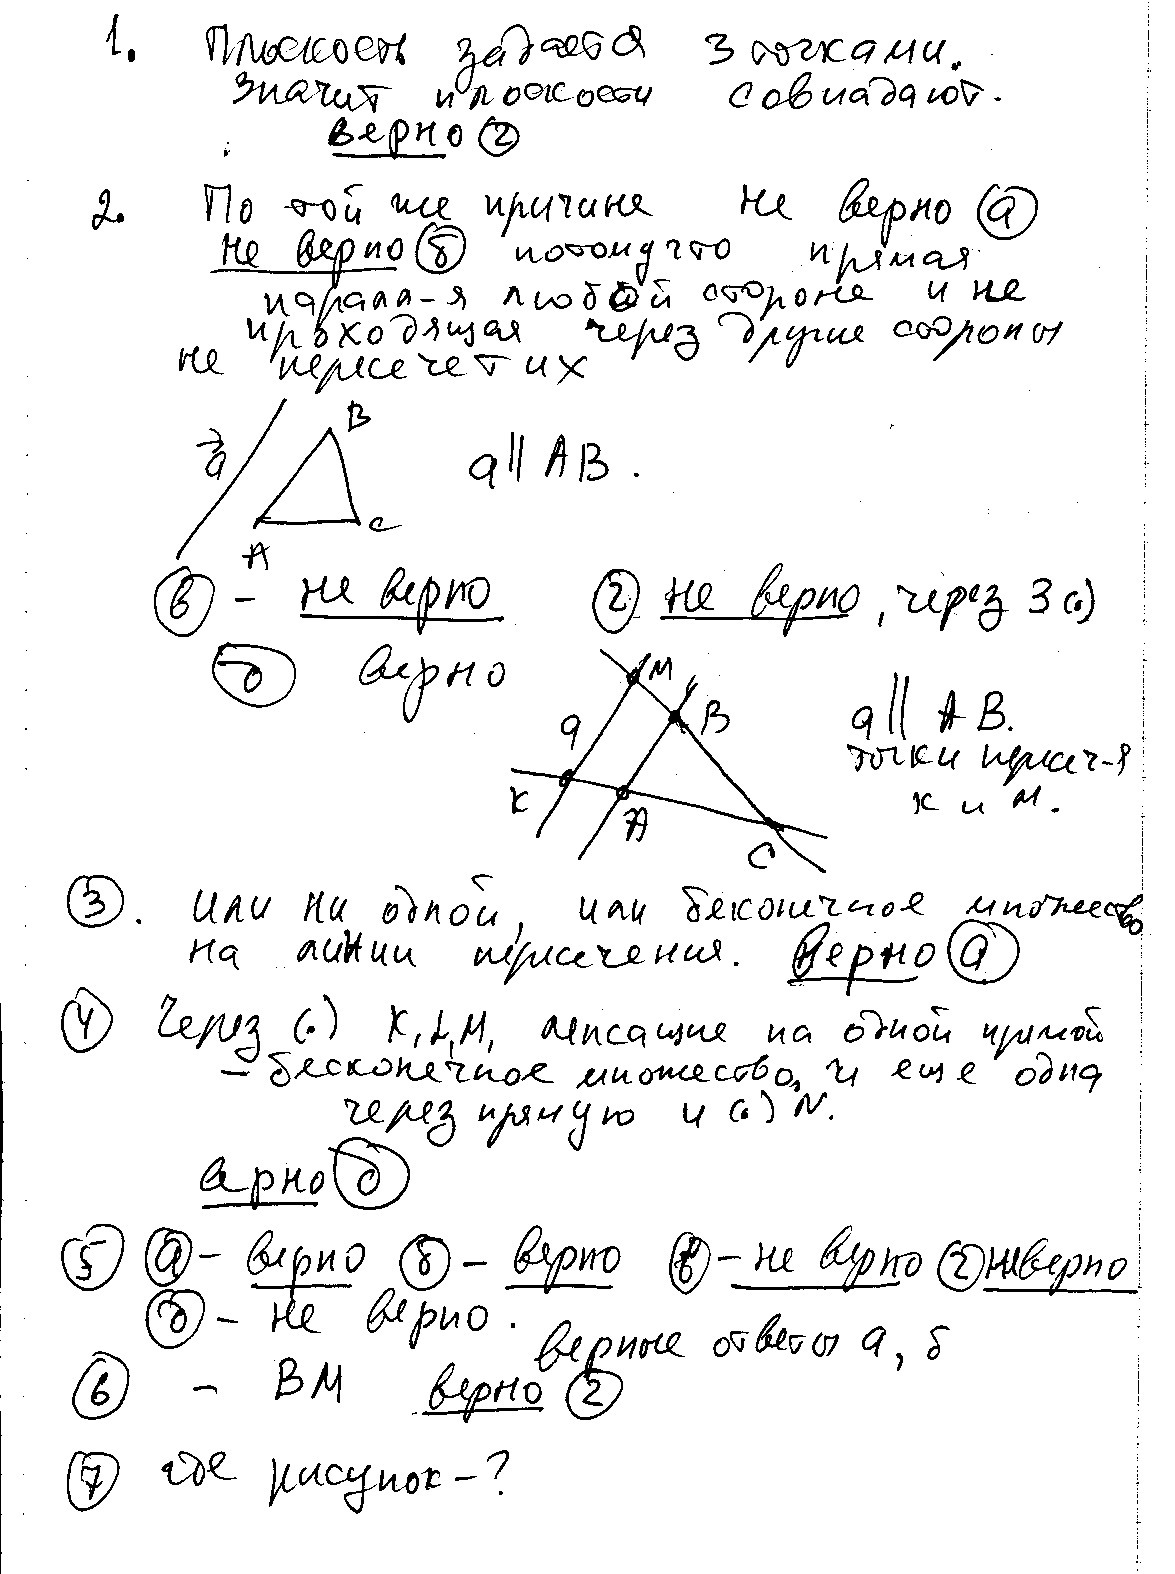 1. Плоскость задается 3 точками.
значит плоскости совпадают.
верно г
2. По той же причине не верно а
не верно б потому что прямая
парал-я любой стороне и не
проходящая через другие стороны
не пересечет их
a
B
A
C
a || AB.
в - не верно г не верно, через 3 (.)
д верно
M
a
B
K
A
C
a || AB.
точки пересеч-я
K и M.
3. Или ни одной, или беконечное множество
на линии пересечения. верно а
4 Через (.) K, L, M, лежащие на одной прямой
- бесконечное множество, и еще одна
через прямую и (.) N.
верно д
5 а - верно б - верно в - не верно г не верно
д - не верно.
верные ответы а, б
6 - BM верно г
7 где рисунок - ?